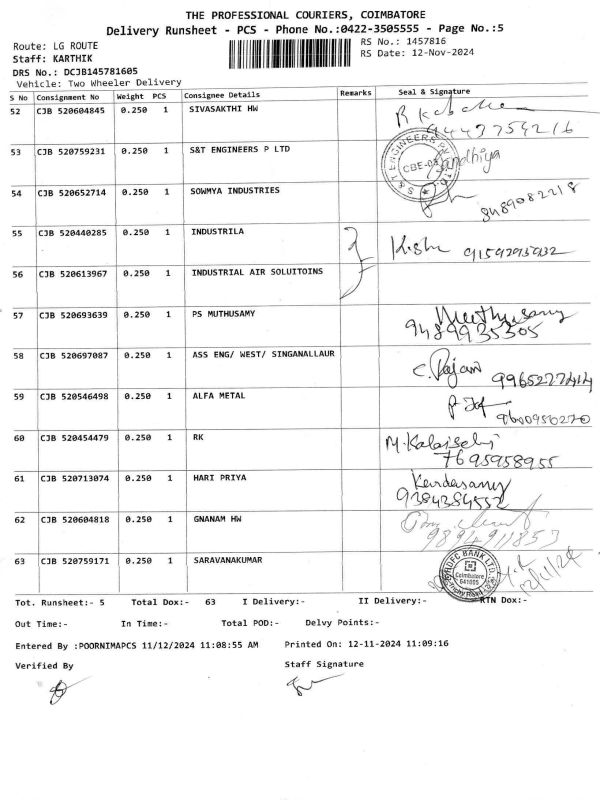 THE PROFESSIONAL COURIERS, COIMBATORE
Delivery Runsheet - PCS - Phone No.:0422-3505555 - Page No.:5
Route: LG ROUTE
RS No.: 1457816
Staff: KARTHIK
RS Date: 12-Nov-2024
DRS No.: DCJB145781605
Vehicle: Two Wheeler Delivery
S No Consignment No Weight PCS Consignee Details Remarks Seal & Signature
52 CJB 520604845 0.250 1 SIVASAKTHI HW
9443754216
53 CJB 520759231 0.250 1 S&T ENGINEERS P LTD Sandhiya
54 CJB 520652714 0.250 1 SOWMYA INDUSTRIES
8489082218
55 CJB 520440285 0.250 1 INDUSTRILA
56 CJB 520613967 0.250 1 INDUSTRIAL AIR SOLUITOINS
57 CJB 520693639 0.250 1 PS MUTHUSAMY Muthusamy
9489935305
58 CJB 520697087 0.250 1 ASS ENG/ WEST/ SINGANALLAUR C. Rajan
59 CJB 520546498 0.250 1 ALFA METAL
60 CJB 520454479 0.250 1 RK M. Kalaiselvi
7695958955
61 CJB 520713074 0.250 1 HARI PRIYA Kandasamy
9384384552
62 CJB 520604818 0.250 1 GNANAM HW
9894911853
63 CJB 520759171 0.250 1 SARAVANAKUMAR HDFC BANK LTD. Coimbatore 12/11/24
Tot. Runsheet:- 5 Total Dox:- 63 I Delivery:- II Delivery:- RTN Dox:-
Out Time:- In Time:- Total POD:- Delvy Points:-
Entered By :POORNIMAPCS 11/12/2024 11:08:55 AM Printed On: 12-11-2024 11:09:16
Verified By Staff Signature